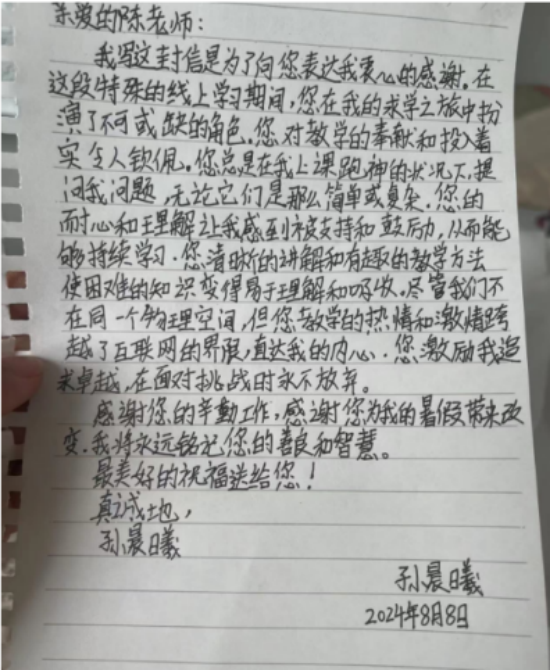 亲爱的陈老师：
我写这封信是为了向您表达我衷心的感谢。在
这段特殊的线上学习期间，您在我的求学之旅中扮
演了不可或缺的角色。您对教学的奉献和投入着
实令人钦佩。您总是在我上课跑神的状况下，提
问我问题，无论它们是那么简单或复杂。您的
耐心和理解让我感到被支持和鼓励，从而能
够持续学习。您清晰的讲解和有趣的教学方法
使困难的知识变得易于理解和吸收。尽管我们不
在同一个物理空间，但您教学的热情和激情跨
越了互联网的界限，直达我的内心。您激励我追
求卓越，在面对挑战时永不放弃。
感谢您的辛勤工作，感谢您为我的暑假带来改
变。我将永远铭记您的善良和智慧。
最美好的祝福送给您！
真诚地，
孙晨曦
孙晨曦
2024年8月8日